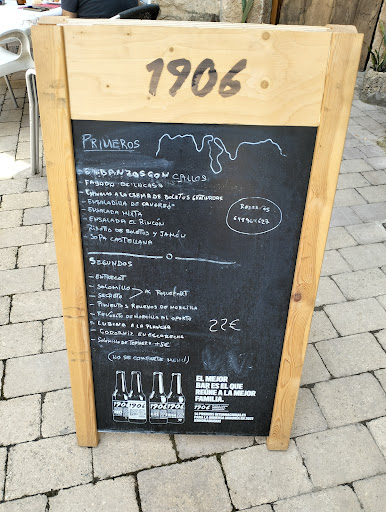 1906
PRIMEROS
GARBANZOS CON CALLOS
FABADA DE LUCAS
ESPINACAS A LA CREMA DE BOLETUS GRATINADAS
- ENSALADILLA DE CANGREJO
- ENSALADA MIXTA
- ENSALADA EL RINCÓN
RISOTTO DE BOLETUS Y JAMÓN
- SOPA CASTELLANA
RESERVAS
SEGUNDOS
- ENTRECOT
- SOLOMILLO
- SECRETO
AL ROQUEFORT
- PIMIENTOS RELLENOS DE MORCILLA
- REVUELTO DE MORCILLA AL OPORTO
- LUBINA A LA PLANCHA
- CODORNIZ EN ESCABECHE
- SOLOMILLO DE TERNERA +5€
22€
(NO SE COMPARTE MENÚ)
EL MEJOR
BAR ES EL QUE
REÚNE A LA MEJOR
FAMILIA.
1906
1906 1906 1906 1906